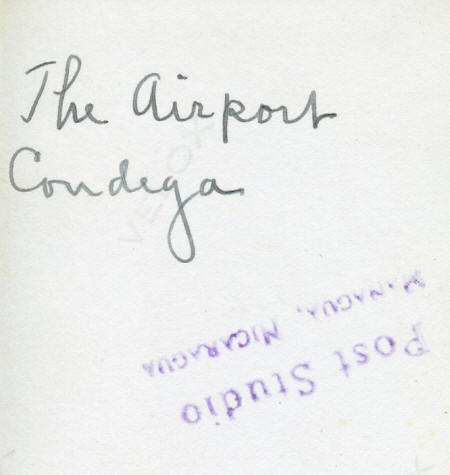 The Airport
Condega
VELOX
Post Studio
MANAGUA, NICARAGUA